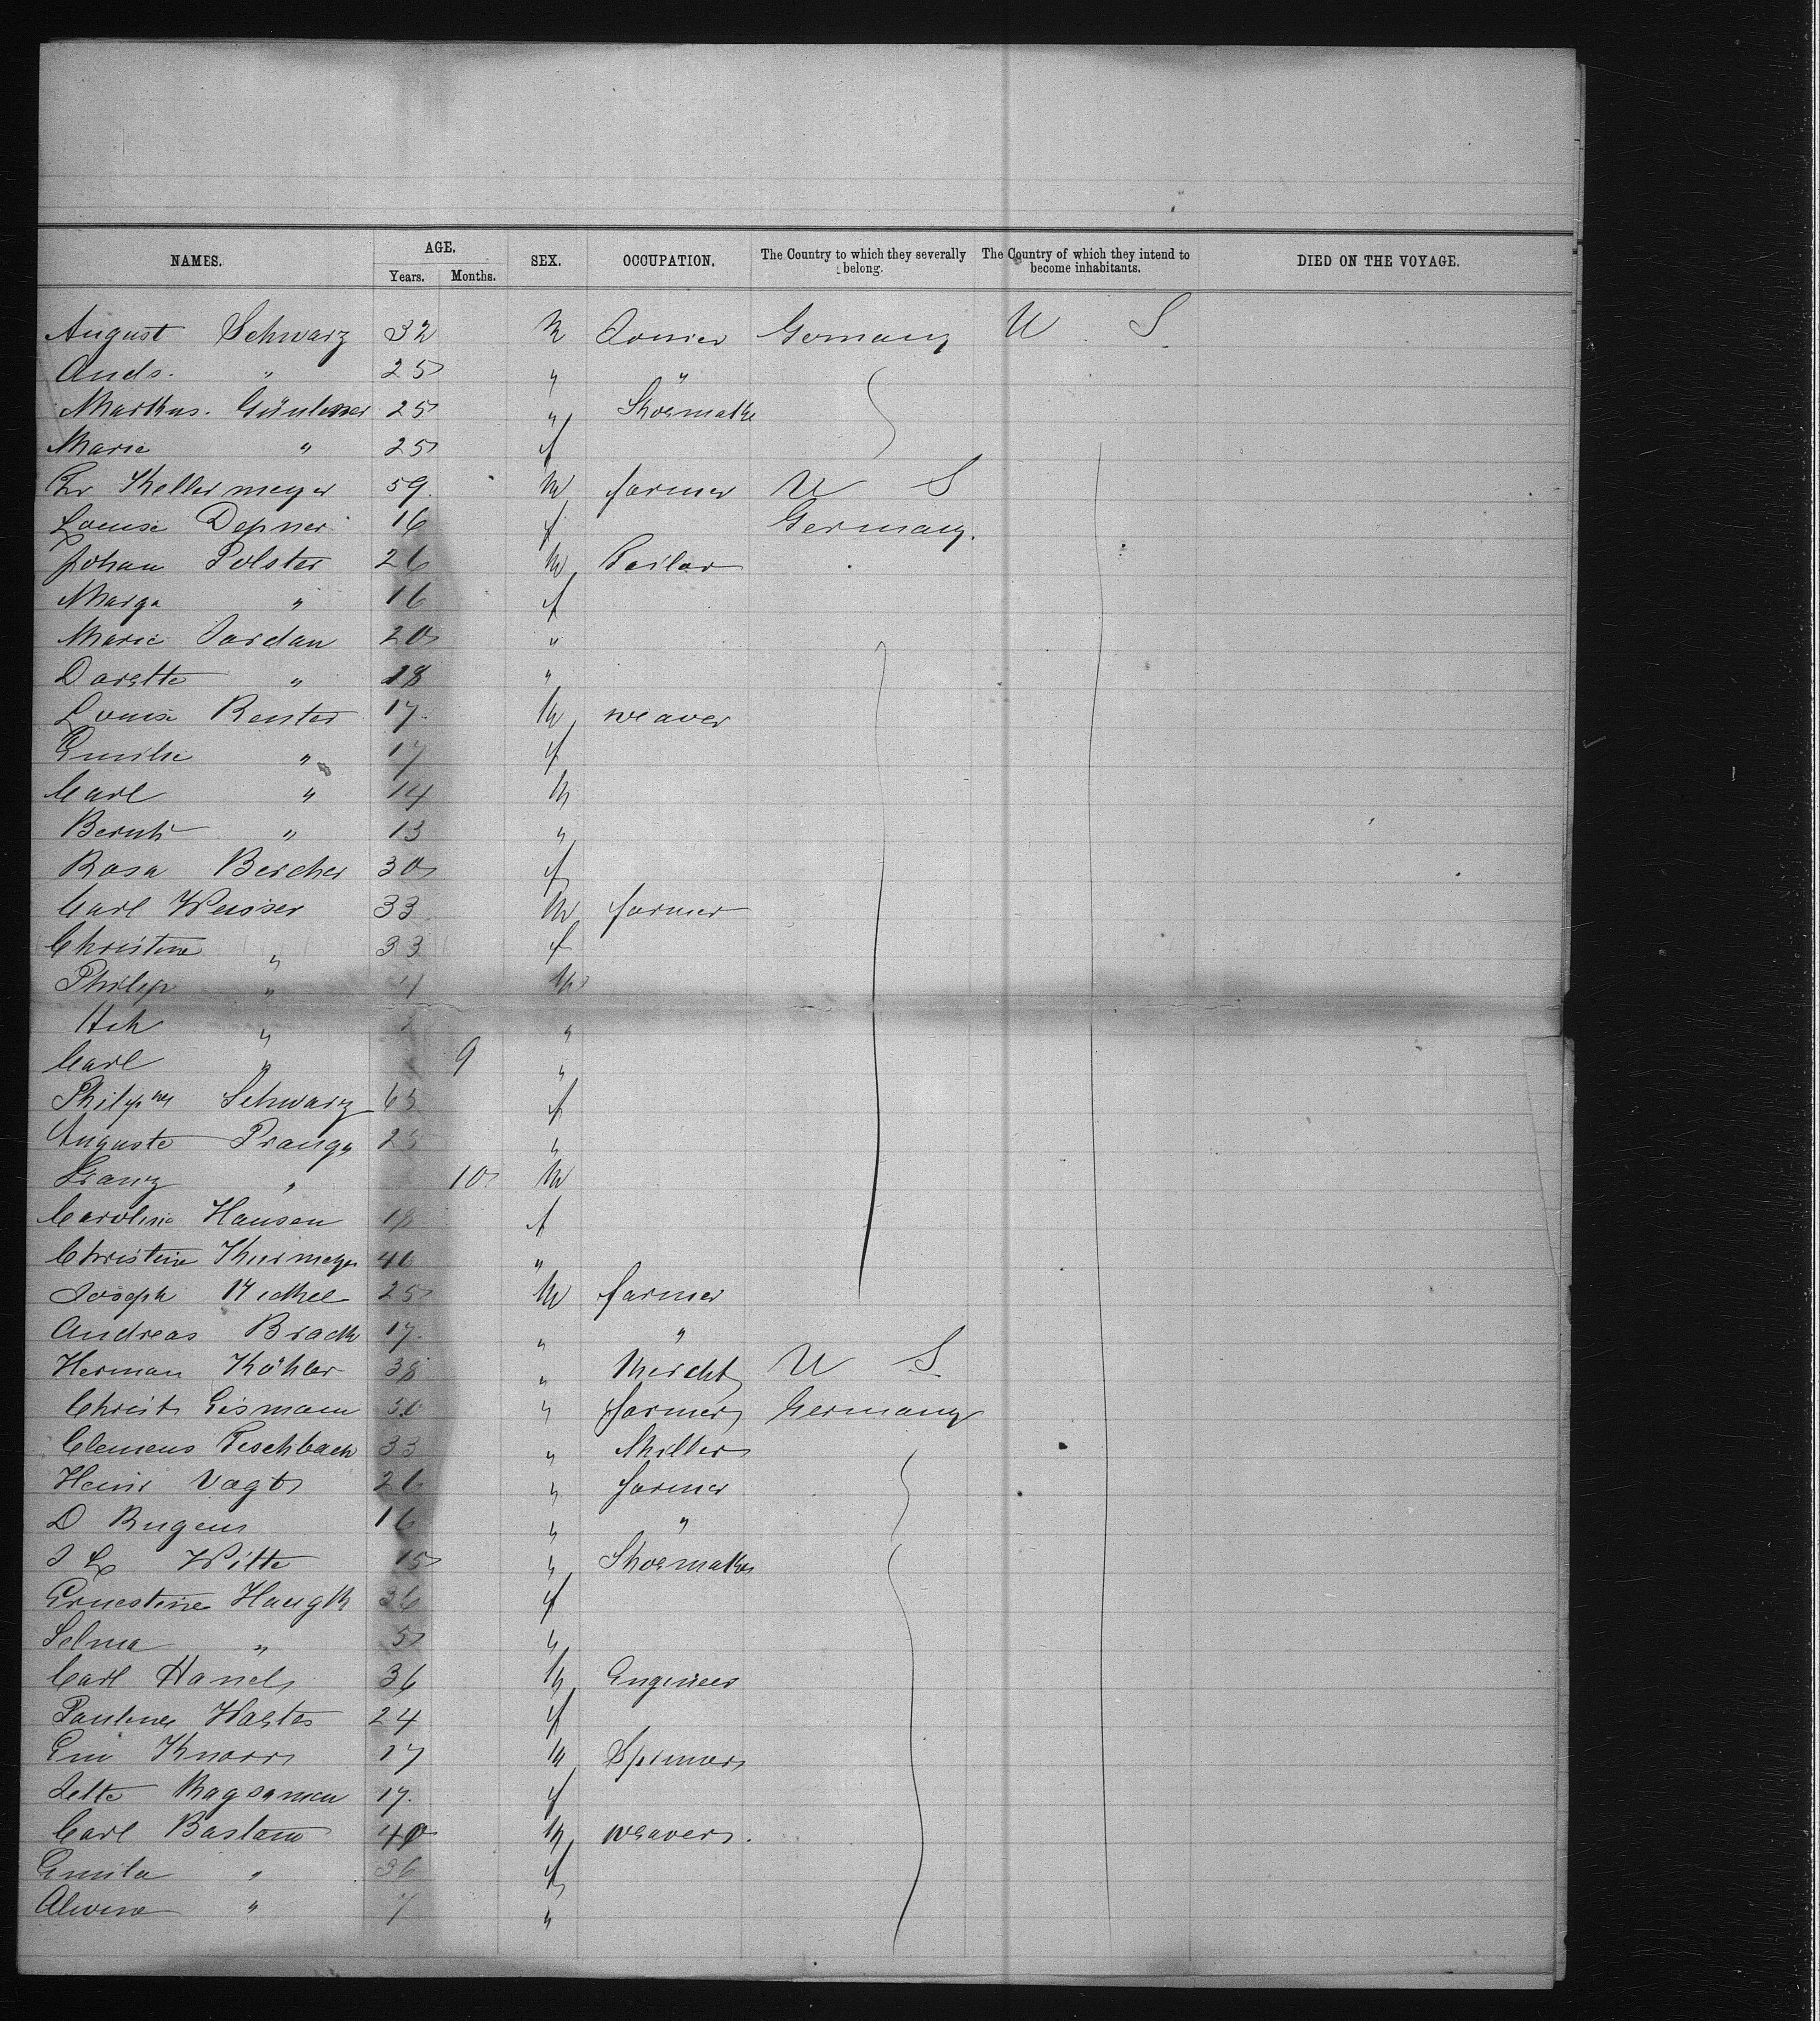 NAMES. AGE. SEX. OCCUPATION. The Country to which they severally belong. The Country of which they intend to become inhabitants. DIED ON THE VOYAGE.
Years. Months.
August Schwarz 32 M Germany U S
Ands. " 25 " "
Markus 25 " Shoemake
Marie " 25 f
Chr Kellermeyer 59 M farmer U S
Louise Depner 16 f Germany
Johan Polster 26 M Teilor
Marga " 16 f
Marie Jordan 20 "
Dorette " 18 "
Louise Renter 17 M weaver
Emilie " 17 f
Carl " 14 M
Bernh " 13 "
Rosa Bercher 30 f
Carl Weisser 33 M farmer
Christine " 33 f
Philip " 4 M
Hch " "
Carl " 9 "
Schwarz 65 f
Auguste 25 "
Franz " 10 M
Caroline Hansen 18 f
Christine 40 "
Joseph 25 M farmer
Andreas Brack 17 " "
Herman Köhler 38 " Mercht U S
Christ Eismann 30 " farmer Germany
Clemens Feschbach 33 " Miller
Heinr Vagts 26 " farmer
D Rugens 16 " "
J L Witte 15 " Shoemaker
Ernestine Haugk 36 f
Selma " 5 "
Carl 36 M Engineer
Pauline 24 f
Knorr 17 M Spinner
Jette 17 f
Carl Bastam 40 M weaver
Emila " 36 f
Alwine " 7 "